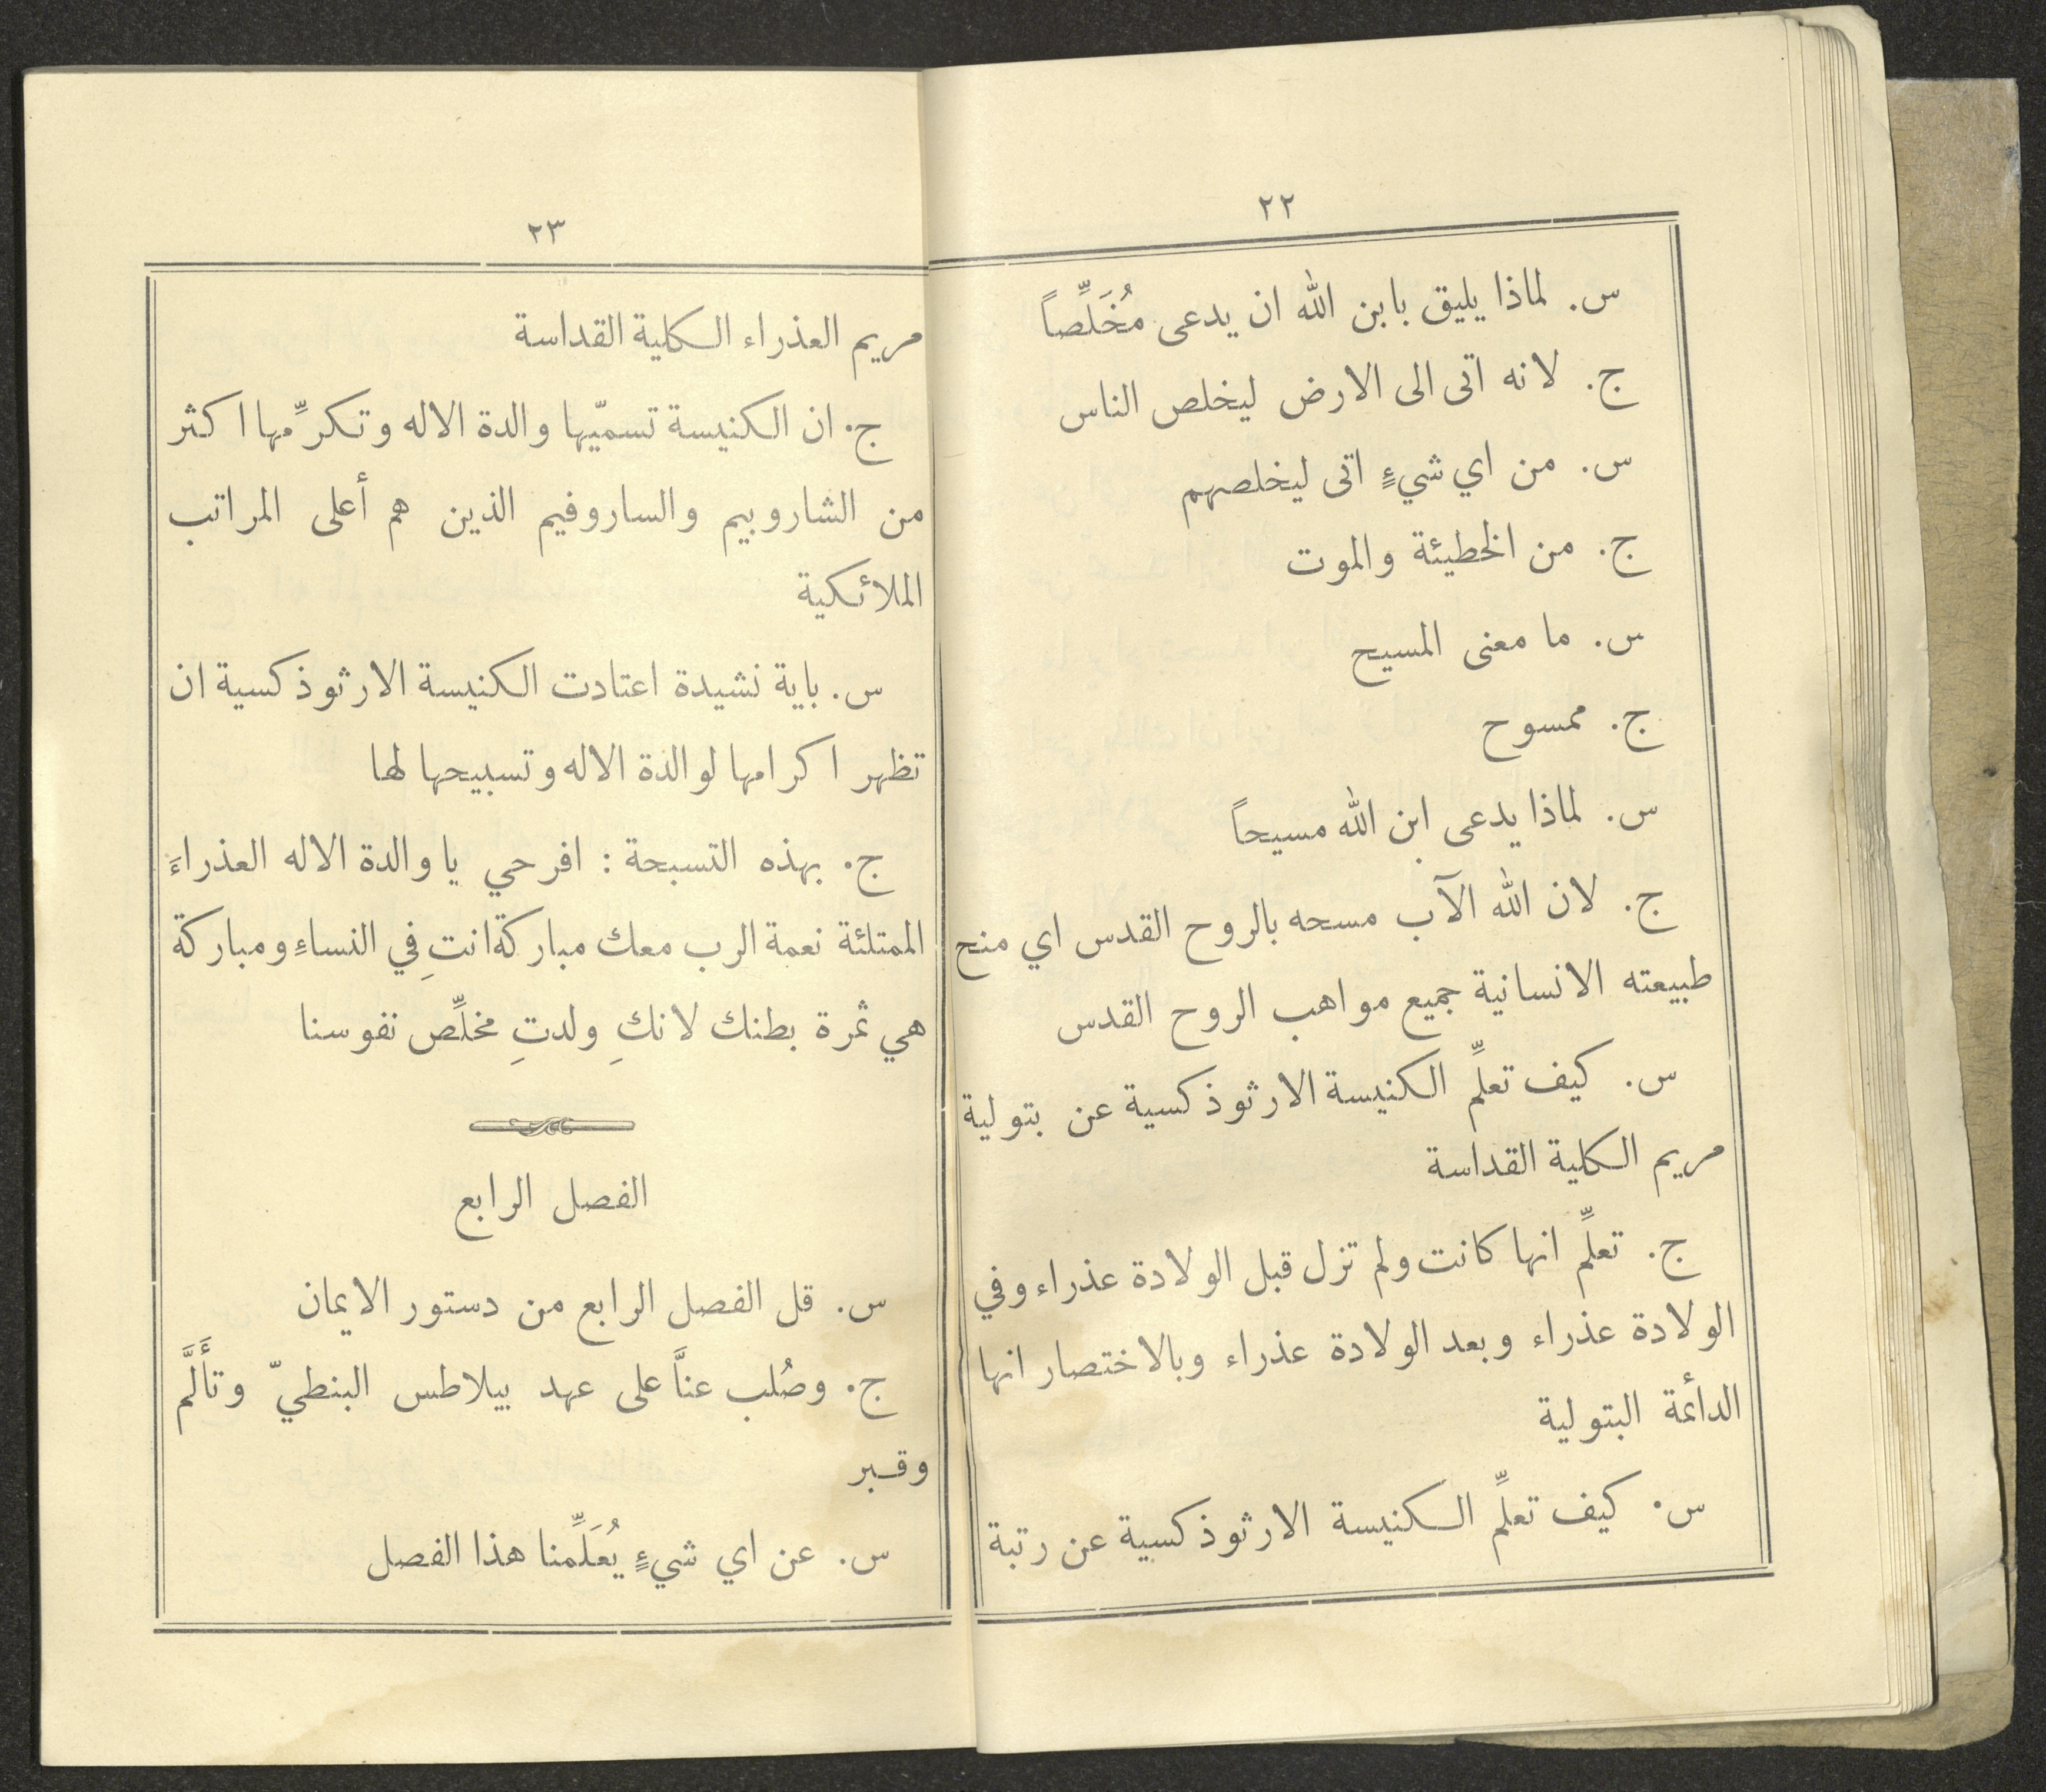 ٢٢
س. لماذا يليق بابن الله ان يدعى مُخَلِّصاً
ج. لانه اتى الى الارض ليخلص الناس
س. من اي شيءٍ اتى ليخلصهم
ج. من الخطيئة والموت
س. ما معنى المسيح
ج. ممسوح
س. لماذا يدعى ابن الله مسيحاً
ج. لان الله الآب مسحه بالروح القدس اي منح
طبيعته الانسانية جميع مواهب الروح القدس
س. كيف تعلِّم الكنيسة الارثوذكسية عن بتولية
مريم الكلية القداسة
ج. تعلِّم انها كانت ولم تزل قبل الولادة عذراء وفي
الولادة عذراء وبعد الولادة عذراء وبالاختصار انها
الدأئمة البتولية
س. كيف تعلِّم الكنيسة الارثوذكسية عن رتبة
٢٣
مريم العذراء الكلية القداسة
ج. ان الكنيسة تسميّها والدة الاله وتكرِّمها اكثر
من الشاروبيم والساروفيم الذين هم أعلى المراتب
الملائكية
س. باية نشيدة اعتادت الكنيسة الارثوذكسية ان
تظهر اكرامها لوالدة الاله وتسبيحها لها
ج. بهذه التسبحة : افرحي يا والدة الاله العذراءَ
الممتلئة نعمة الرب معك مباركة انتِ في النساءِ ومباركة
هي ثمرة بطنك لانكِ ولدتِ مخلِّص نفوسنا
الفصل الرابع
س. قل الفصل الرابع من دستور الايمان
ج. وصُلب عنَّا على عهد بيلاطس البنطيّ وتأَلَّم
وقبر
س. عن اي شيءٍ يُعَلِّمنا هذا الفصل